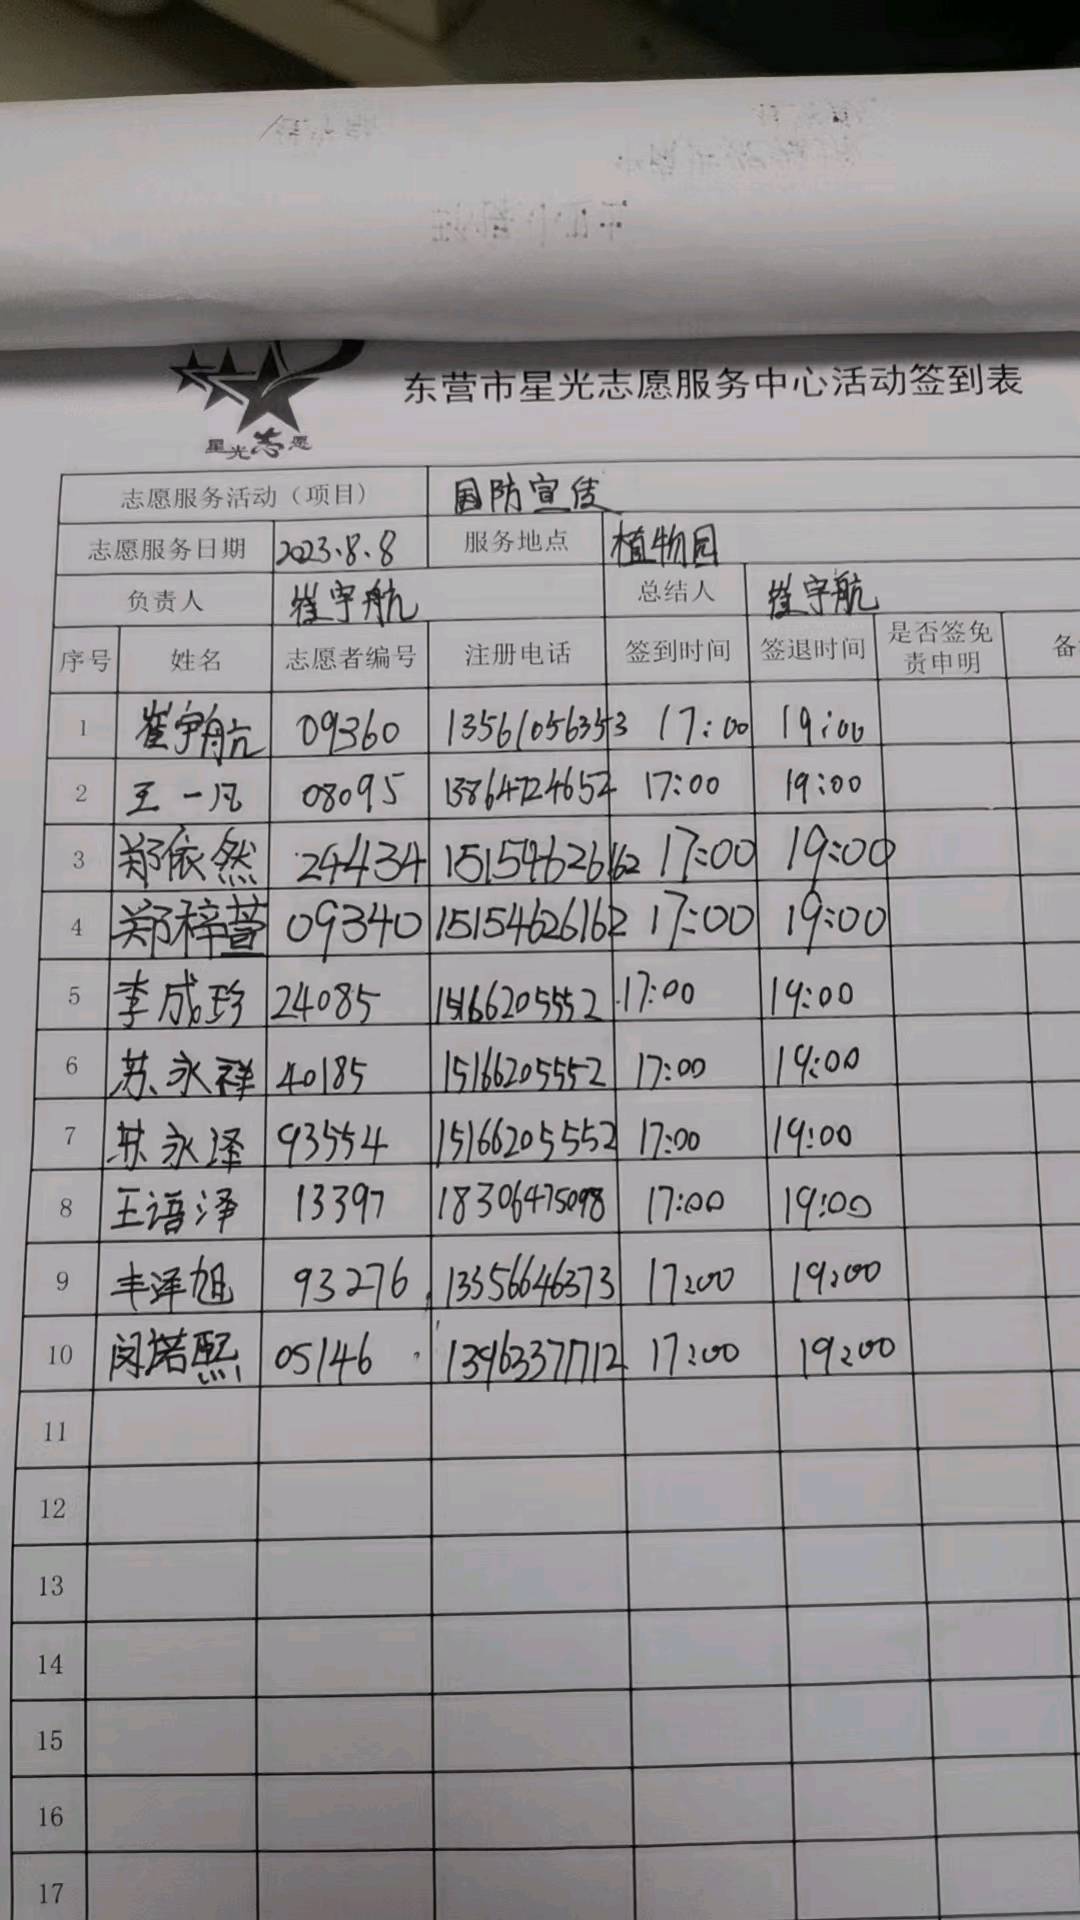 东营市星光志愿服务中心活动签到表
星光志愿
志愿服务活动（项目） 国防宣传
志愿服务日期 2023.8.8 服务地点 植物园
负责人 崔宇航 总结人 崔宇航
序号 姓名 志愿者编号 注册电话 签到时间 签退时间 是否签免责申明 备
1 崔宇航 09360 13561056353 17:00 19:00
2 王一凡 08095 13864724652 17:00 19:00
3 郑依然 24434 15154626162 17:00 19:00
4 郑梓萱 09340 15154626162 17:00 19:00
5 李成珍 24085 15166205552 17:00 19:00
6 苏永祥 40185 15166205552 17:00 19:00
7 苏永泽 93554 15166205552 17:00 19:00
8 王语泽 13397 18306475098 17:00 19:00
9 丰泽旭 93276 13356646373 17:00 19:00
10 闵诺熙 05146 13963377712 17:00 19:00
11
12
13
14
15
16
17